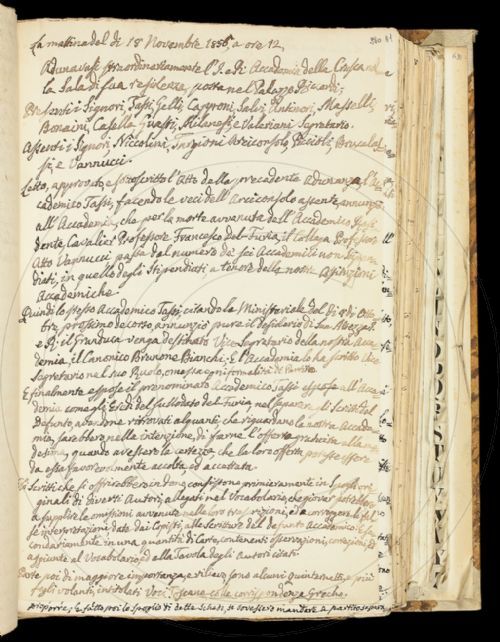 La mattina del dì 18 Novembre 1856, a ore 12,
Adunavasi straordinariamente l'I. e R. Accademia della Crusca nel-
la Sala di sua residenza, posta nel Palazzo Riccardi;
Presenti i Signori, Tassi, Gelli, Capponi, Salvi, Antinori, Masselli,
Bonaini, Casella, Guasti, Milanesi, e Valeriani Segretario.
Assenti i Signori Niccolini, Arciconsolo, Bruscolo-
si, e Vannucci.
Letto, approvato, e sottoscritto l'Atto della precedente adunanza, l'Ac-
cademico Tassi, facendo le veci dell'Arciconsolo assente, annunziò
all'Accademia, che per la morte avvenuta dell'Accademico
dente, Cavalier Professore Francesco del Furia, il Collega Professor
Atto Vannucci passa dal numero de' sei Accademici non stipen-
diati, in quello degli Stipendiati, a tenore delle nostre
Accademiche.
Quindi lo stesso Accademico Tassi, citando la Ministeriale del dì Otto-
bre prossimo decorso, annunziò pure il desiderio di Sua Altezza I.
e R. il Granduca venga destinato Vice-Segretario della nostra Acca-
demia il Canonico Brunone Bianchi; E l'Accademia lo ha scritto Vice
Segretario nel suo Ruolo, omessa ogni formalità di Partito.
E finalmente espose il prenominato Accademico Tassi all'Acca-
demia come gli Eredi del sullodato del Furia, nel separare gli scritti del
Defunto, avendone ritrovati alquanti, che riguardano la nostra Accade-
mia, sarebbero nella intenzione, di farne l'offerta gratuita alla me-
desima, quando avessero la certezza, che la loro offerta potesse essere
da essa favorevolmente accolta, ed accettata.
Gli scritti che si offrirebbero in dono, consistono primieramente in Spogli ori-
ginali di diversi Autori, allegati nel Vocabolario, che giovar potrebbero
a supplire le omissioni avvenute nelle loro trascrizioni, e a correggere le fal-
se interpretazioni date dai Copisti alle Scritture del defunto Accademico; e se-
condariamente in una quantità di Carte, contenenti osservazioni, correzioni, ed
aggiunte al Vocabolario, ed alla Tavola degli Autori citati.
Parte poi di maggiore importanza, e rilievo sono alcuni Quinternetti, e più
figli volanti, intitolati Voci Toscane colle corrispondenze Greche.
proporre, se fatto poi lo spoglio di dette Schede, si dovessero mandare a partito